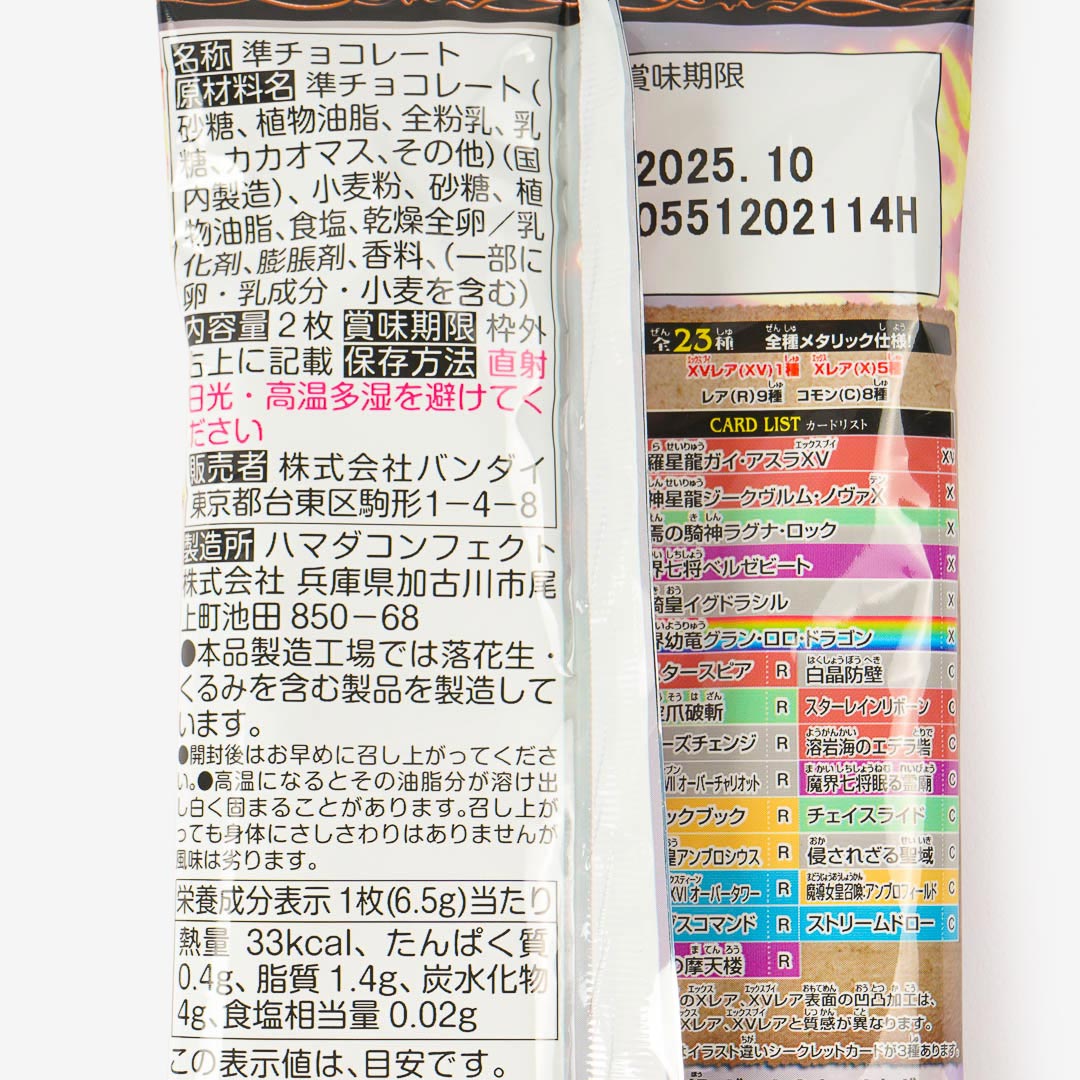 名称 準チョコレート
原材料名 準チョコレート(
砂糖、植物油脂、全粉乳、乳
糖、カカオマス、その他)(国
内製造)、小麦粉、砂糖、植
物油脂、食塩、乾燥全卵/乳
化剤、膨脹剤、香料、(一部に
卵・乳成分・小麦を含む)
内容量 2枚 賞味期限 枠外
右上に記載 保存方法 直射
日光・高温多湿を避けてく
ださい
販売者 株式会社バンダイ
東京都台東区駒形1-4-8
製造所 ハマダコンフェクト
株式会社 兵庫県加古川市尾
上町池田 850-68
●本品製造工場では落花生・
くるみを含む製品を製造して
います。
●開封後はお早めに召し上がってくださ
い。●高温になるとその油脂分が溶け出
し白く固まることがあります。召し上が
っても身体にさしさわりはありませんが
風味は劣ります。
栄養成分表示 1枚(6.5g)当たり
熱量 33kcal、たんぱく質
0.4g、脂質 1.4g、炭水化物
4g、食塩相当量 0.02g
この表示値は、目安です。
賞味期限
2025.10
0551202114H
全23種 全種メタリック仕様!
XVレア(XV)1種 Xレア(X)5種
レア(R)9種 コモン(C)8種
CARD LIST カードリスト
羅星龍ガイ・アスラXV XV
神星龍ジークヴルム・ノヴァX X
焉の騎神ラグナ・ロック X
界七将ベルゼビート X
騎皇イグドラシル X
界幼竜グラン・ロロ・ドラゴン X
タースピア R 白晶防壁 C
爪破斬 R スターレインリボーン C
ーズチェンジ R 溶岩海のエデラ砦 C
VII オーバーチャリオット R 魔界七将眠る霊廟 C
ックブック R チェイスライド C
皇アンブロシウス R 侵されざる聖域 C
XVI オーバータワー R 魔導女皇召喚:アンブロフィールド C
スコマンド R ストリームドロー C
の摩天楼 R
のXレア、XVレア表面の凹凸加工は、
Xレア、XVレアと質感が異なります。
はイラスト違いシークレットカードが3種あります。